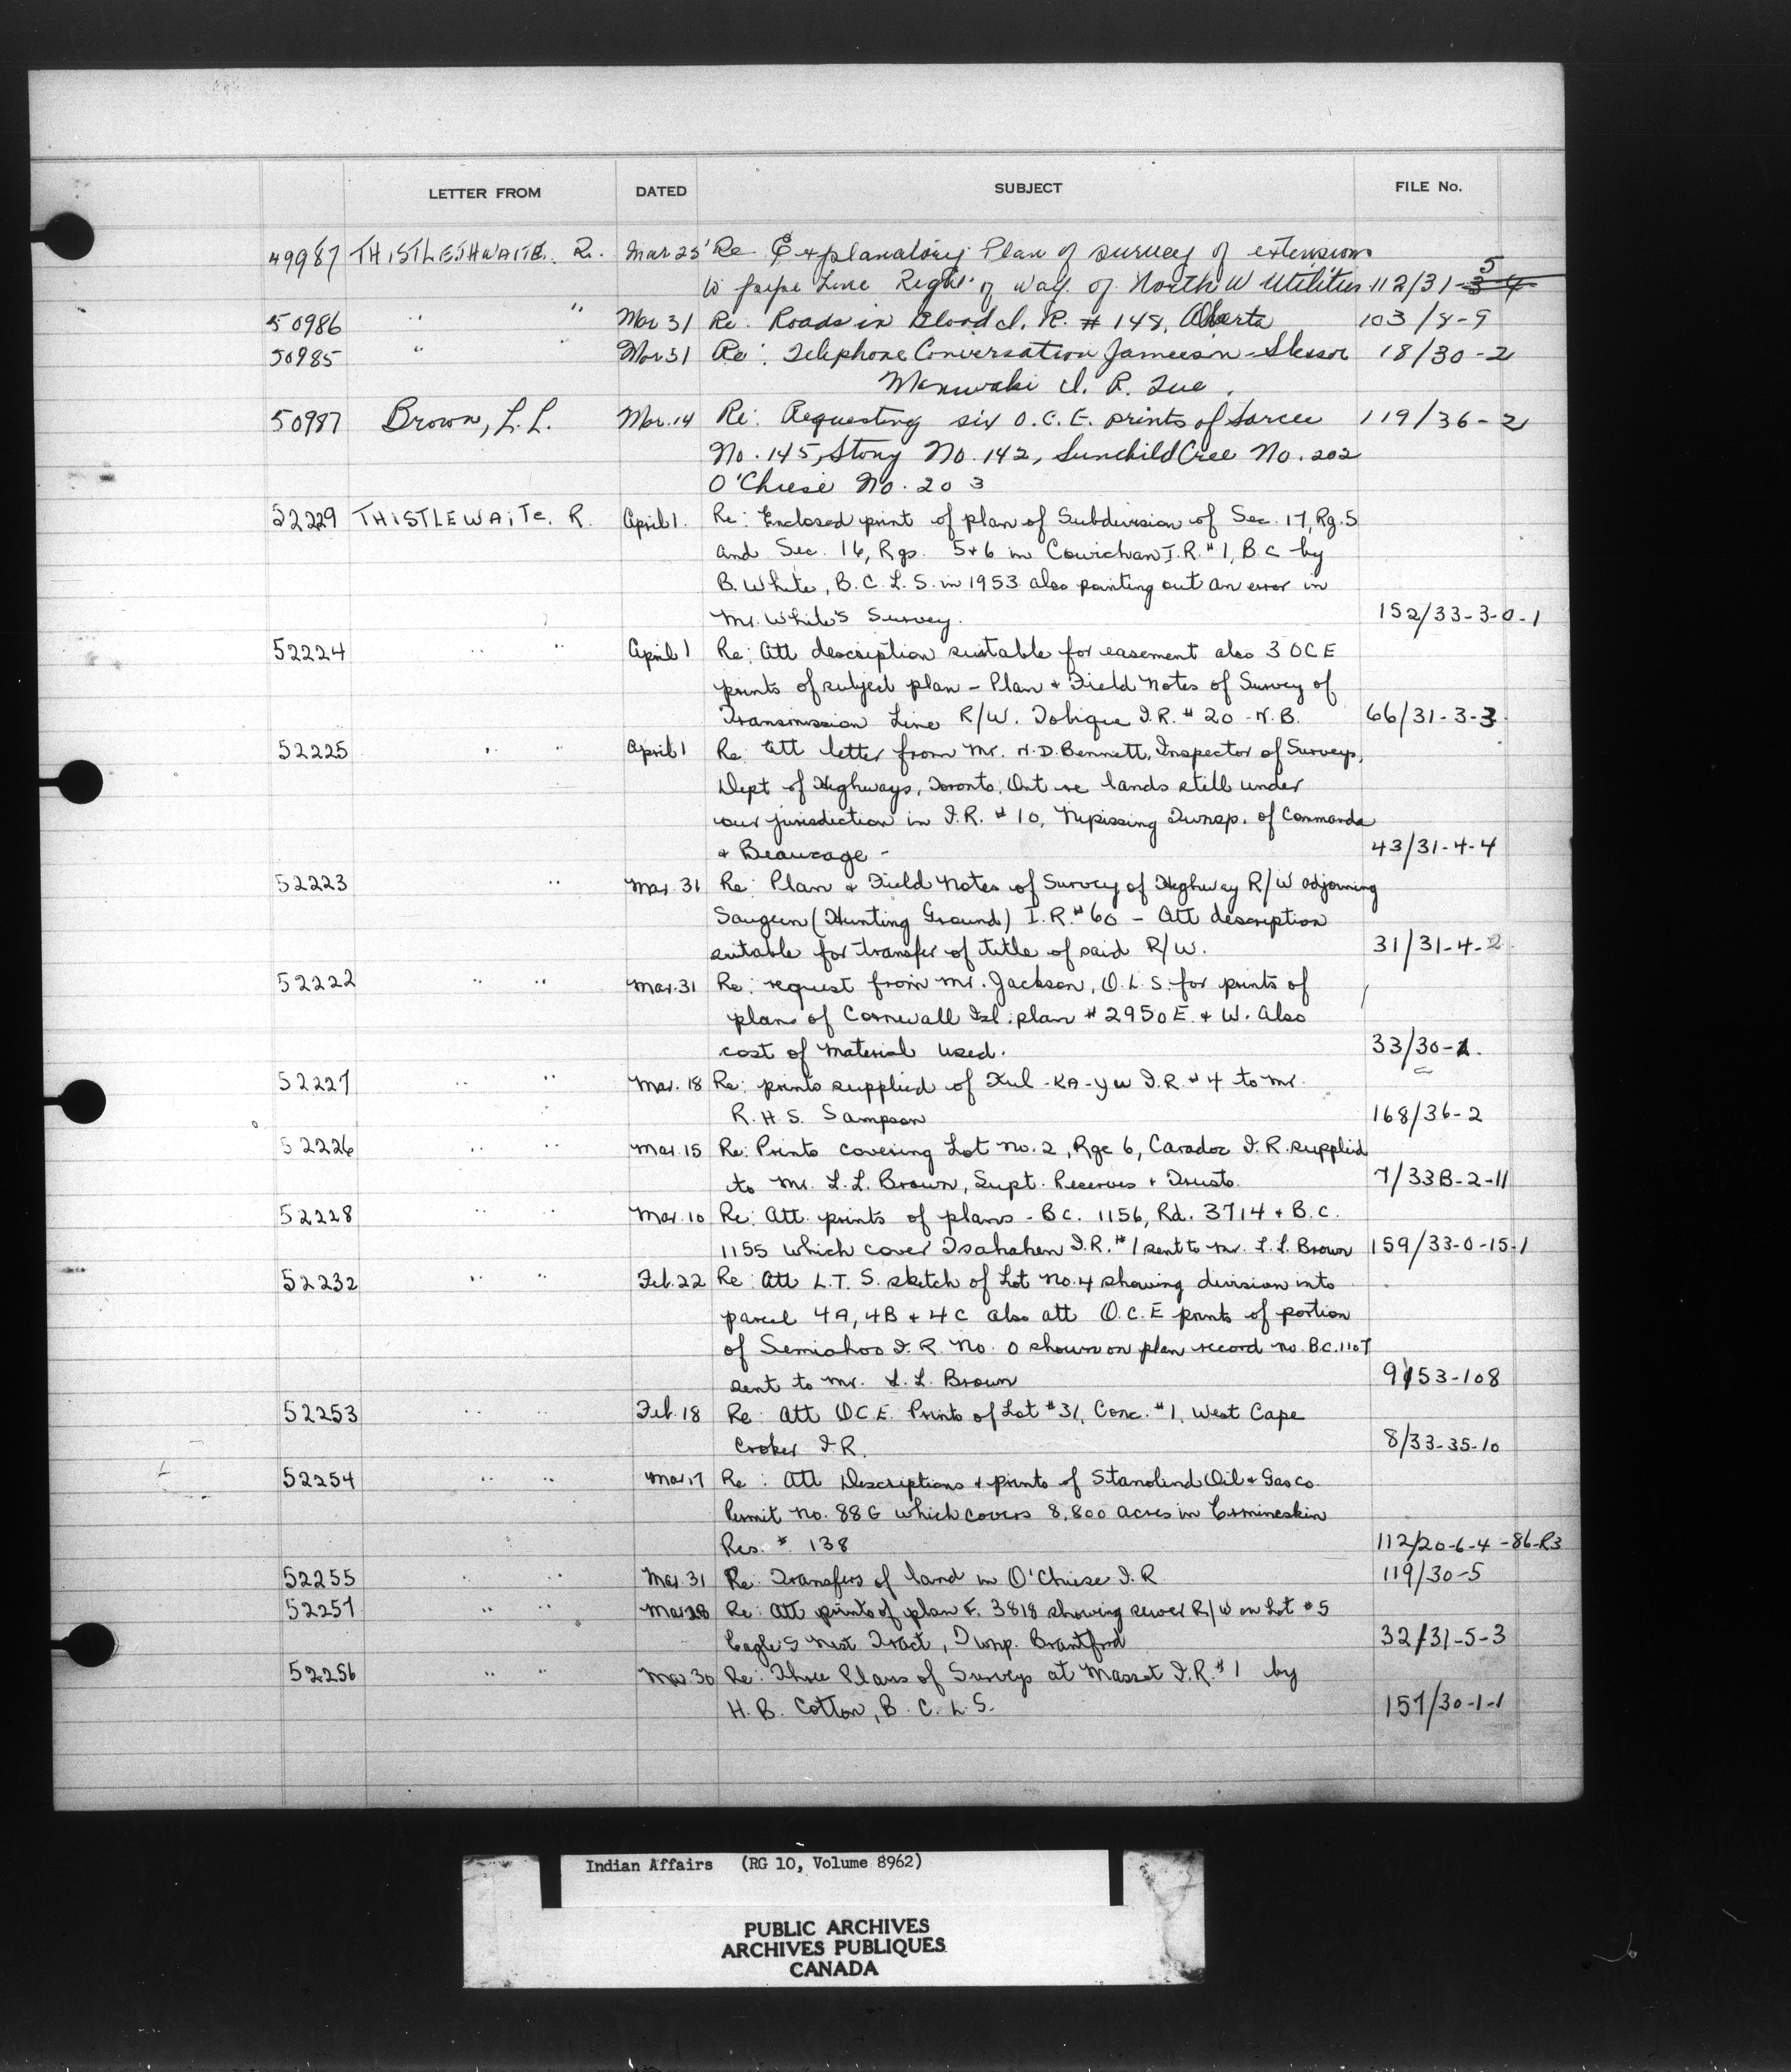 LETTER FROM DATED SUBJECT FILE No.
49987 THISTLETHWAITE. R. Mar 25 Re Explanatory Plan of survey of extensions
to pipe Line Right of Way of North W Utilities 112/31-3-4 5
50986 " " Mar 31 Re: Roads in Blood I. R. # 148, Alberta 103/8-9
50985 " " Mar 31 Re: Telephone Conversation Jameeson-Slessor 18/30-2
Maniwaki I. R. Que.
50987 Brown, L.L. Mar. 14 Re: Requesting six O.C.E. prints of Sarcee 119/36-2
No. 145, Stony No. 142, Sunchild Cree No. 202
O'Chiese No. 203
52229 THISTLEWAITE. R. April 1. Re: Enclosed print of plan of Subdivision of Sec. 17, Rg. 5
and Sec. 16, Rgs. 5+6 in Cowichan I.R. #1, B.C by
B. White, B.C.L.S. in 1953 also pointing out an error in
Mr. White's Survey. 152/33-3-0-1
52224 " " April 1 Re: Att description suitable for easement also 3 OCE
prints of subject plan - Plan + Field Notes of Survey of
Transmission Line R/W. Tobique I.R. # 20 - N.B. 66/31-3-3
52225 " " April 1 Re: Att letter from Mr. N.D. Bennett, Inspector of Surveys,
Dept of Highways, Toronto, Ont re lands still under
our jurisdiction in I.R. # 10, Nipissing Twnsp. of Commanda
+ Beaucage - 43/31-4-4
52223 " Mar. 31 Re: Plan + Field Notes of Survey of Highway R/W adjoining
Saugeen (Hunting Ground) I.R. #60 - Att description
suitable for transfer of title of said R/W. 31/31-4-2
52222 " " Mar. 31 Re: request from Mr. Jackson, O.L.S. for prints of
plans of Cornwall Isl. plan # 2950 E. + W. Also
cost of material used. 33/30-1.
52227 " " Mar. 18 Re: prints supplied of Kul-KA-Yu I.R. # 4 to Mr.
R.H.S. Sampson 168/36-2
52226 " " Mar. 15 Re: Prints covering Lot No. 2, Rge 6, Caradoc I.R. supplied
to Mr. L.L. Brown, Supt. Reserves + Trusts. 7/33B-2-11
52228 " " Mar. 10 Re: Att. prints of plans - BC. 1156, Rd. 3714 + B.C.
1155 which cover Tsahahen I.R. #1 sent to Mr. L.L. Brown 159/33-0-15-1
52232 " " Feb. 22 Re: Att L.T.S. sketch of Lot No. 4 showing division into
parcel 4A, 4B + 4C also att O.C.E prints of portion
of Semiahoo I.R. No. 0 shown on plan record no. BC. 1107
sent to Mr. L.L. Brown 9/53-108
52253 " " Feb. 18 Re: Att O.C.E. Prints of Lot #31, Conc. #1, West Cape
Croker I.R. 8/33-35-10
52254 " " Mar. 17 Re: Att Descriptions + prints of Stanolind Oil + Gas co.
Permit No. 88G which covers 8,800 acres in Ermineskin
Res. # 138 112/20-6-4-86-R3
52255 " " Mar. 31 Re: Transfers of land in O'Chiese I.R. 119/30-5
52257 " " Mar 28 Re: Att prints of plan F. 3818 showing sewer R/W on Lot #5
Eagle's Nest Tract, Twnp. Brantford 32/31-5-3
52256 " " Mar. 30 Re: Three Plans of Surveys at Masset I.R. #1 by
H.B. Cotton, B.C.L.S. 157/30-1-1
Indian Affairs (RG 10, Volume 8962)
PUBLIC ARCHIVES
ARCHIVES PUBLIQUES
CANADA